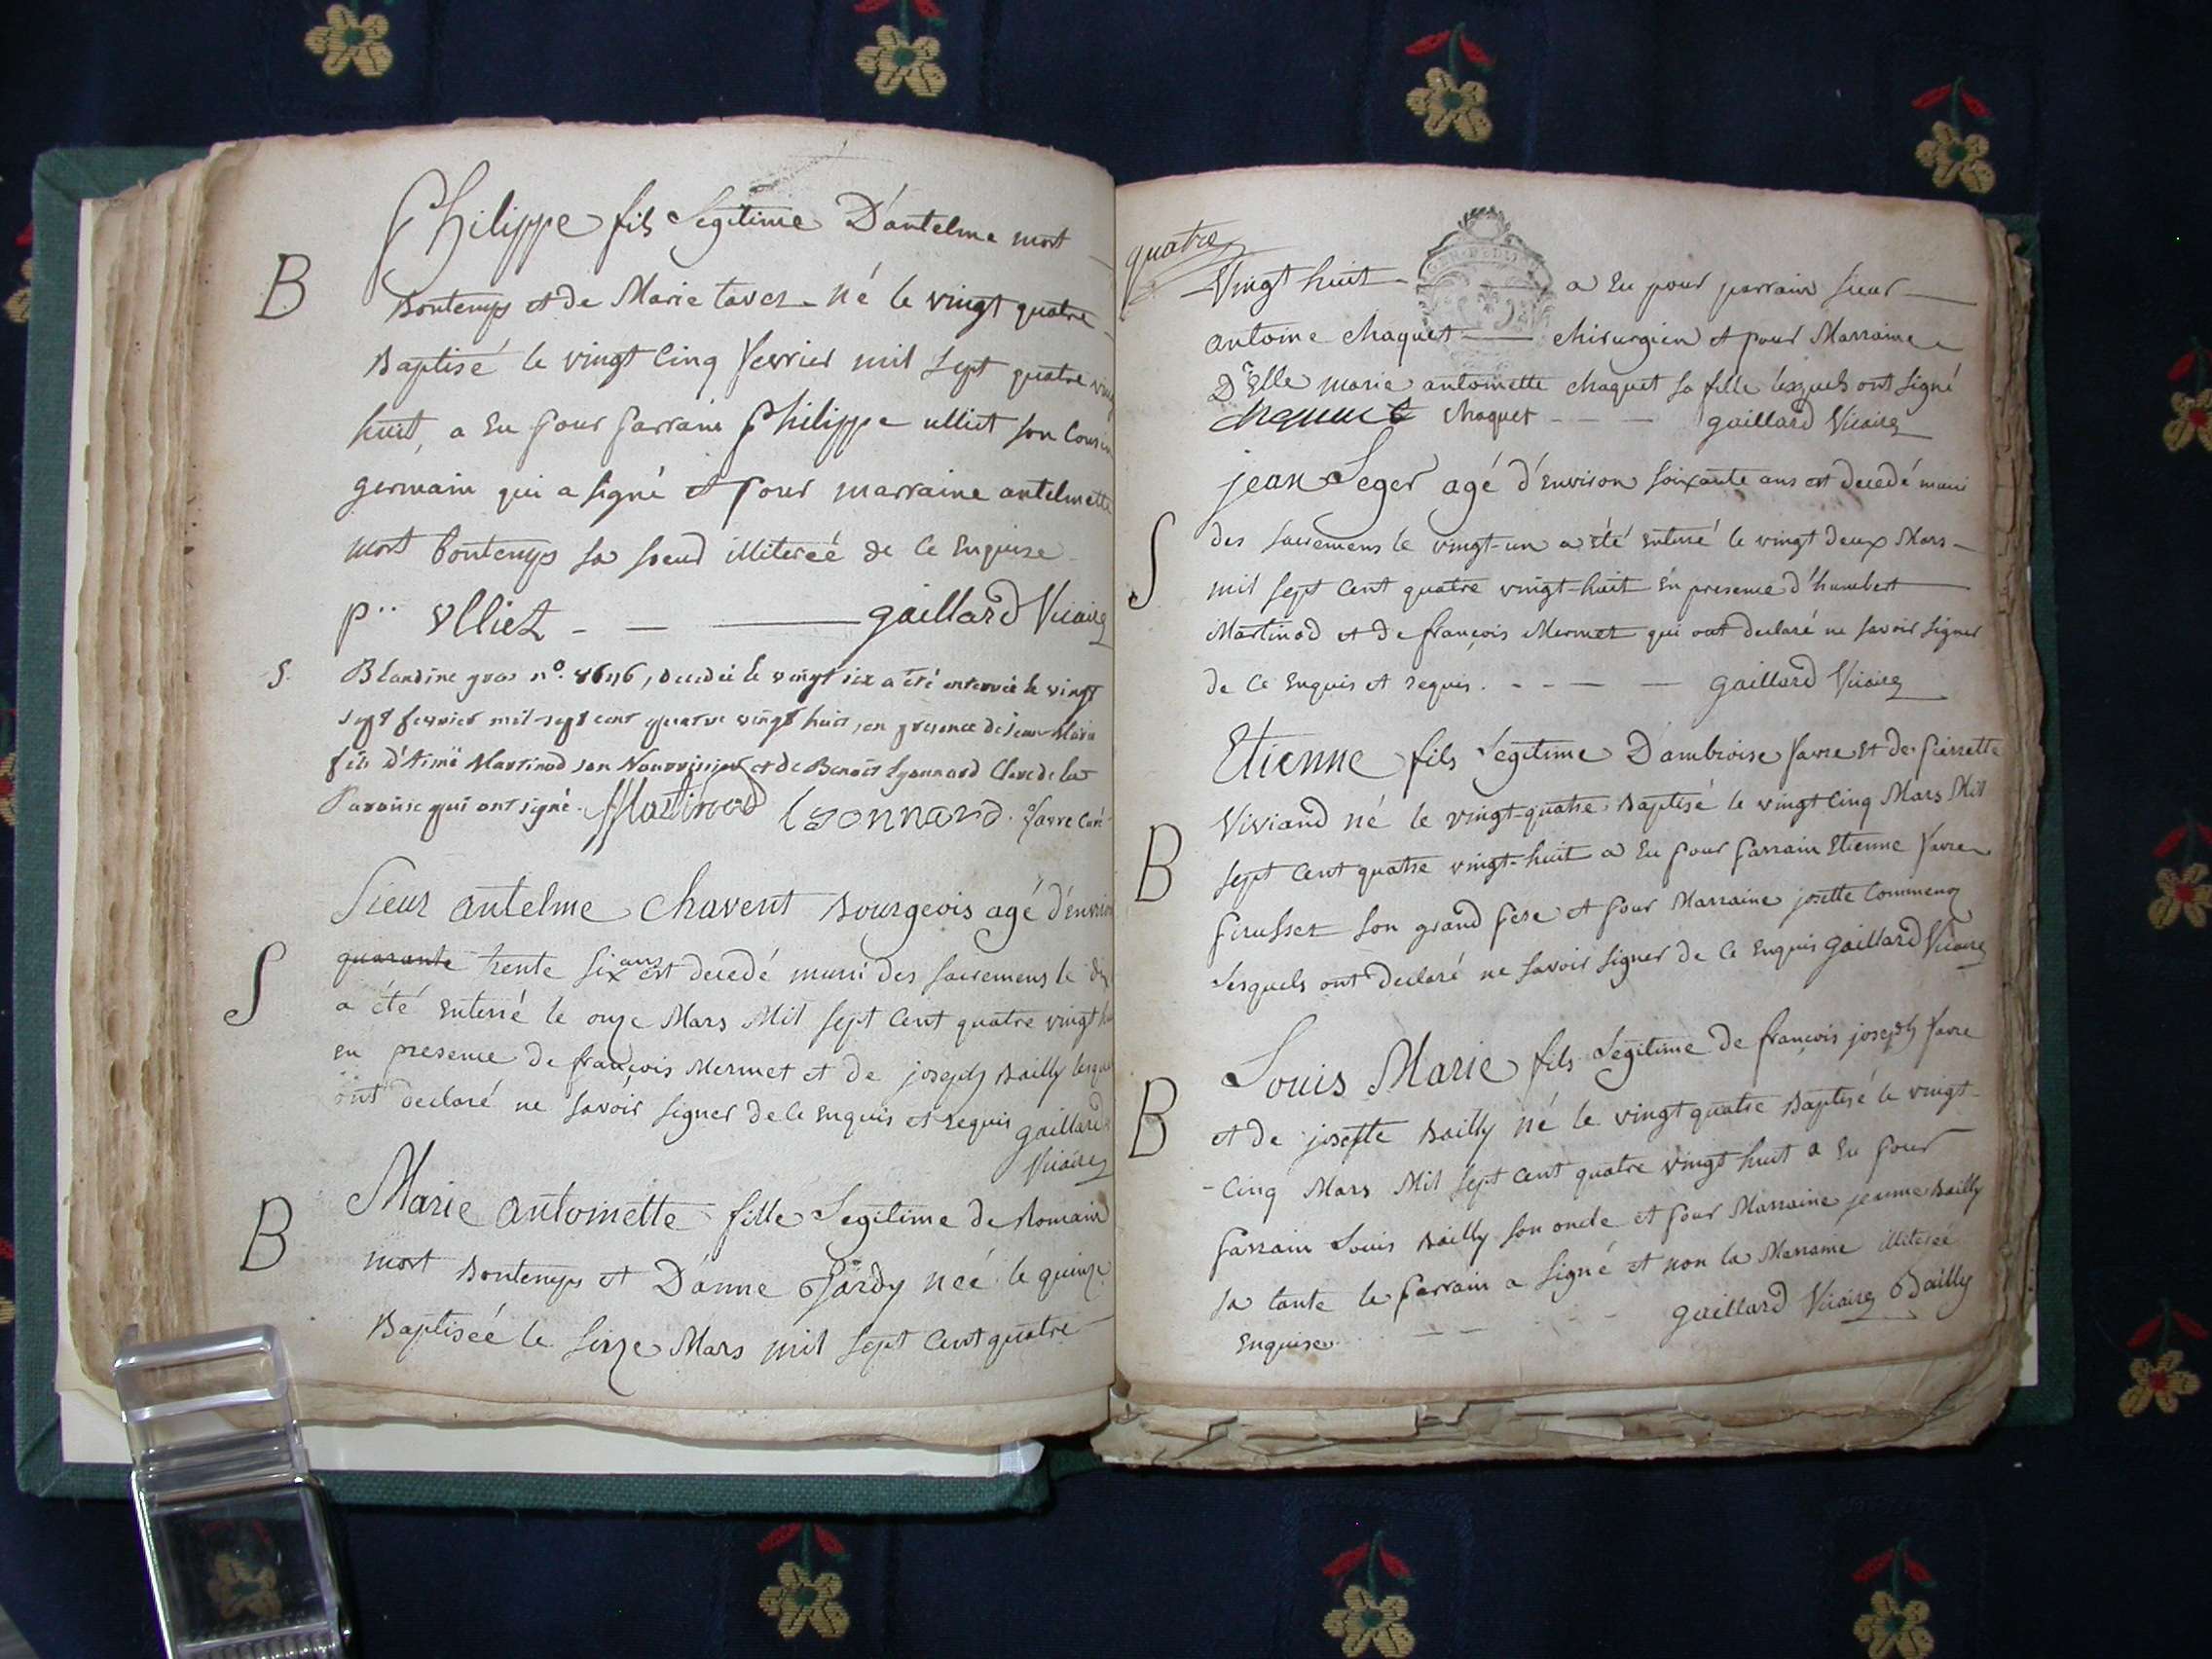 Philippe fils Legitime D'antelme mort
B
Bontemps et de Marie taver né le vingt quatre
Baptisé le vingt Cinq fevrier mil Sept quatre vingt
huit, a Eu pour parrain Philippe ulliet son Cousin
germain qui a signé et pour marraine antelmette
mort bontemps sa soeur illitereé de Ce Enquise
p.. ulliet - — — gaillard Vicaire
S. Blandine gros n°. , decedée le vingt six a été enterrée le vingt
sept fevrier mil-sept cent quatre vingt huit, en presence de Jean-Marie
fils d'Aimé Martinod son Nourrissier et de Benoit Lyonnard Clerc de la
Paroisse qui ont signé. Martinod Lyonnard. favre Curé
Sieur antelme Chavent Bourgeois agé d'environ
S
quarante trente six ans est decedé muni des sacremens le dix
a été Enterré le onze Mars Mil sept Cent quatre vingt huit
en presence de françois Mermet et de joseph Bailly lesquels
ont declaré ne savoir signer de Ce Enquis et requis gaillard
Vicaire
Marie antoinette fille Legitime de Romain
B
mort Bontemps et D'anne neé le quinze
Baptiseé le seize Mars mil sept Cent quatre
quatre
Vingt huit - a Eu pour parrain sieur
antoine Chaquet — chirurgien et pour Marraine
D'elle marie antoinette Chaquet sa fille lesquels ont signé
Chaquet - - - gaillard Vicaire
jean Leger agé d'Environ soixante ans est decedé muni
S
des sacremens le vingt-un a été Enterré le vingt deux Mars
mil sept Cent quatre vingt-huit En presence d'humbert
Martinod et de françois Mermet qui ont declaré ne savoir signer
de Ce Enquis et requis. - - — — gaillard Vicaire
Etienne fils Legitime D'ambroise favre Et de pierrette
Viviand né le vingt-quatre Baptisé le vingt Cinq Mars Mil
B
sept Cent quatre vingt-huit a Eu pour parrain Etienne favre
son grand pere et pour Marraine josette
Lesquels ont declaré ne savoir signer de Ce Enquis gaillard Vicaire
Louis Marie fils Legitime de françois joseph favre
B
et de josepte Bailly né le vingt quatre Baptisé le vingt-
-Cinq Mars Mil sept Cent quatre vingt huit a Eu pour
parrain Louis Bailly son oncle et pour Marraine jeanne Bailly
sa tante le parrain a signé et non la Marraine illitereé
Enquise. gaillard Vicaire Bailly